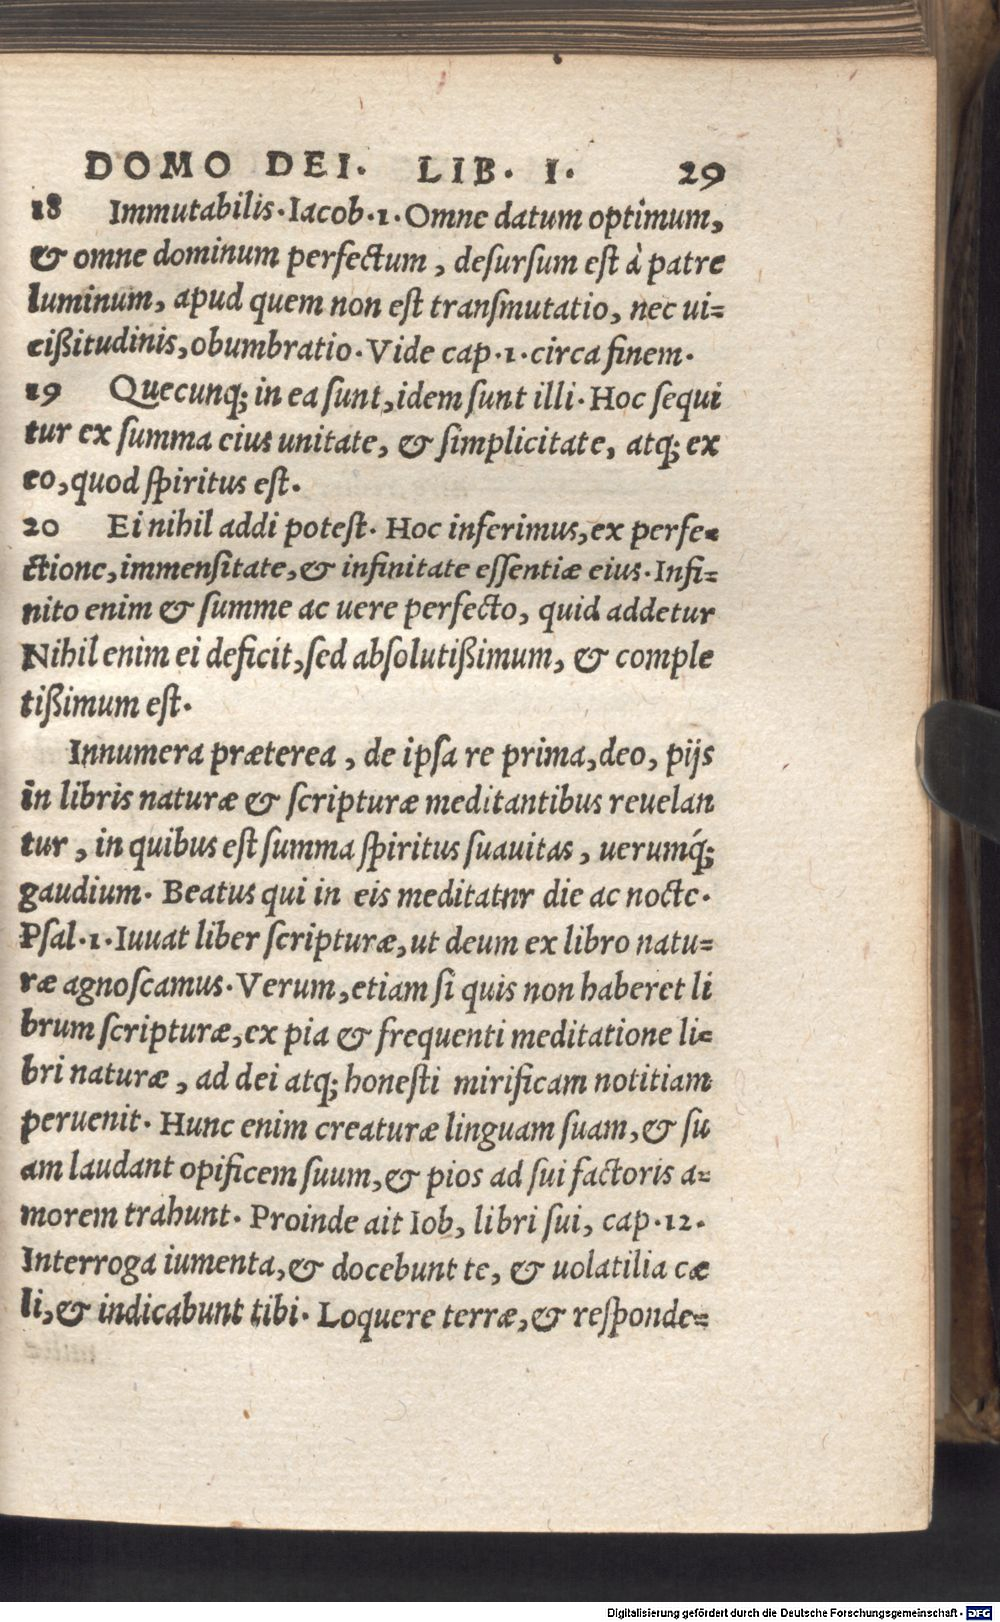 DOMO DEI. LIB. I. 29
18 Immutabilis. Iacob. 1. Omne datum optimum,
& omne dominum perfectum, desursum est à patre
luminum, apud quem non est transmutatio, nec ui=
cißitudinis, obumbratio. Vide cap. 1. circa finem.
19 Quecunq; in ea sunt, idem sunt illi. Hoc sequi
tur ex summa eius unitate, & simplicitate, atq; ex
eo, quod spiritus est.
20 Ei nihil addi potest. Hoc inferimus, ex perfe=
ctione, immensitate, & infinitate essentiæ eius. Infi=
nito enim & summe ac uere perfecto, quid addetur
Nihil enim ei deficit, sed absolutißimum, & comple
tißimum est.
Innumera præterea, de ipsa re prima, deo, pijs
in libris naturæ & scripturæ meditantibus reuelan
tur, in quibus est summa spiritus suauitas, uerumq́;
gaudium. Beatus qui in eis meditatnr die ac nocte.
Psal. 1. Iuuat liber scripturæ, ut deum ex libro natu=
ræ agnoscamus. Verum, etiam si quis non haberet li
brum scripturæ, ex pia & frequenti meditatione li=
bri naturæ, ad dei atq; honesti mirificam notitiam
peruenit. Hunc enim creaturæ linguam suam, & su
am laudant opificem suum, & pios ad sui factoris a=
morem trahunt. Proinde ait Iob, libri sui, cap. 12.
Interroga iumenta, & docebunt te, & uolatilia cæ
li, & indicabunt tibi. Loquere terræ, & responde=
Digitalisierung gefördert durch die Deutsche Forschungsgemeinschaft - DFG